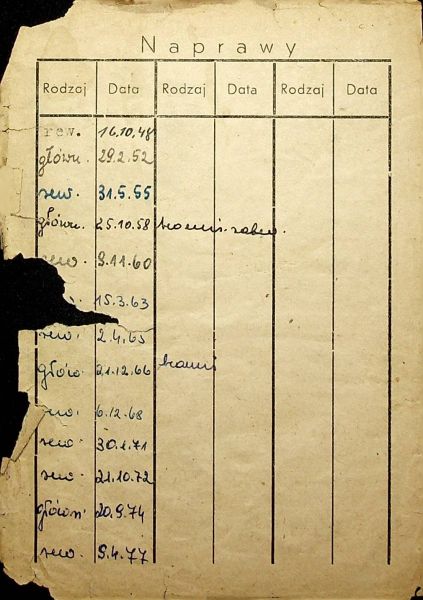 Naprawy
Rodzaj Data Rodzaj Data Rodzaj Data
rew. 16.10.48
główn. 29.2.52
rew. 31.5.55
główn. 25.10.58
rew. 9.11.60
15.3.63
rew. 2.4.65
głów. 21.12.66
rew. 6.12.68
rew. 30.1.71
rew 21.10.72
główn. 20.9.74
rew. 9.4.77